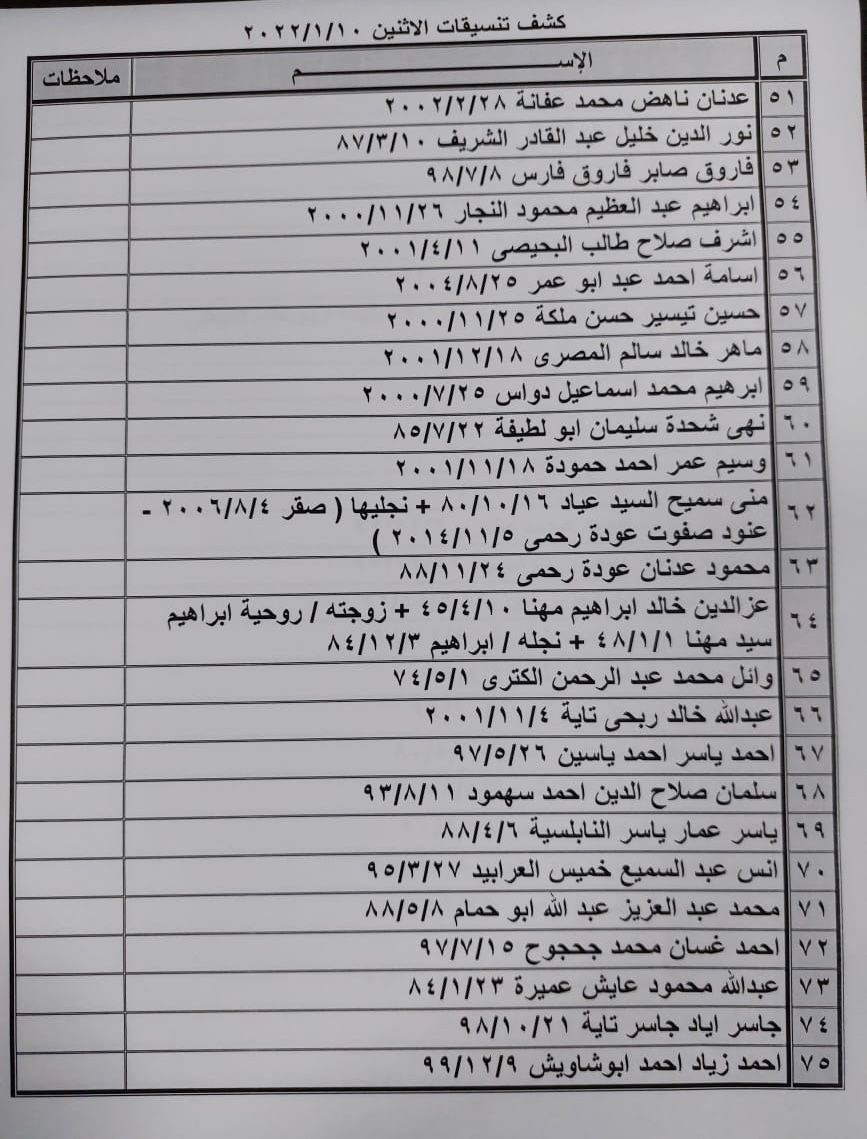 كشف تنسيقات الاثنين ٢٠٢٢/١/١٠
م الإســـــــــــــــــــم ملاحظات
٥١ عدنان ناهض محمد عفانة ٢٠٠٢/٢/٢٨
٥٢ نور الدين خليل عبد القادر الشريف ٨٧/٣/١٠
٥٣ فاروق صابر فاروق فارس ٩٨/٧/٨
٥٤ ابراهيم عبد العظيم محمود النجار ٢٠٠٠/١١/٢٦
٥٥ اشرف صلاح طالب البحيصى ٢٠٠١/٤/١١
٥٦ اسامة احمد عبد ابو عمر ٢٠٠٤/٨/٢٥
٥٧ حسين تيسير حسن ملكة ٢٠٠٠/١١/٢٥
٥٨ ماهر خالد سالم المصرى ٢٠٠١/١٢/١٨
٥٩ ابرهيم محمد اسماعيل دواس ٢٠٠٠/٧/٢٥
٦٠ نهى شحدة سليمان ابو لطيفة ٨٥/٧/٢٢
٦١ وسيم عمر احمد حمودة ٢٠٠١/١١/١٨
٦٢ منى سميح السيد عياد ٨٠/١٠/١٦ + نجليها ( صقر ٢٠٠٦/٨/٤ -
عنود صفوت عودة رحمى ٢٠١٤/١١/٥ )
٦٣ محمود عدنان عودة رحمى ٨٨/١١/٢٤
٦٤ عزالدين خالد ابراهيم مهنا ٤٥/٤/١٠ + زوجته / روحية ابراهيم
سيد مهنا ٤٨/١/١ + نجله / ابراهيم ٨٤/١٢/٣
٦٥ وائل محمد عبد الرحمن الكترى ٧٤/٥/١
٦٦ عبدالله خالد ربحى تاية ٢٠٠١/١١/٤
٦٧ احمد ياسر احمد ياسين ٩٧/٥/٢٦
٦٨ سلمان صلاح الدين احمد سهمود ٩٣/٨/١١
٦٩ ياسر عمار ياسر النابلسية ٨٨/٤/٦
٧٠ انس عبد السميع خميس العرابيد ٩٥/٣/٢٧
٧١ محمد عبد العزيز عبد الله ابو حمام ٨٨/٥/٨
٧٢ احمد غسان محمد جحجوح ٩٧/٧/١٥
٧٣ عبدالله محمود عايش عميرة ٨٤/١/٢٣
٧٤ جاسر اياد جاسر تاية ٩٨/١٠/٢١
٧٥ احمد زياد احمد ابوشاويش ٩٩/١٢/٩